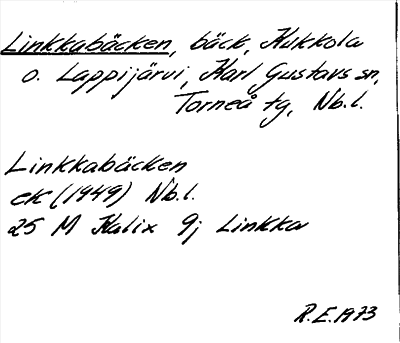 Linkkabäcken, bäck, Kukkola
o. Lappijärvi, Karl Gustavs sn,
Torneå tg, Nb.l.
Linkkabäcken
ek (1949) Nb.l.
25 M Kalix 9j Linkka
R.E. 1973